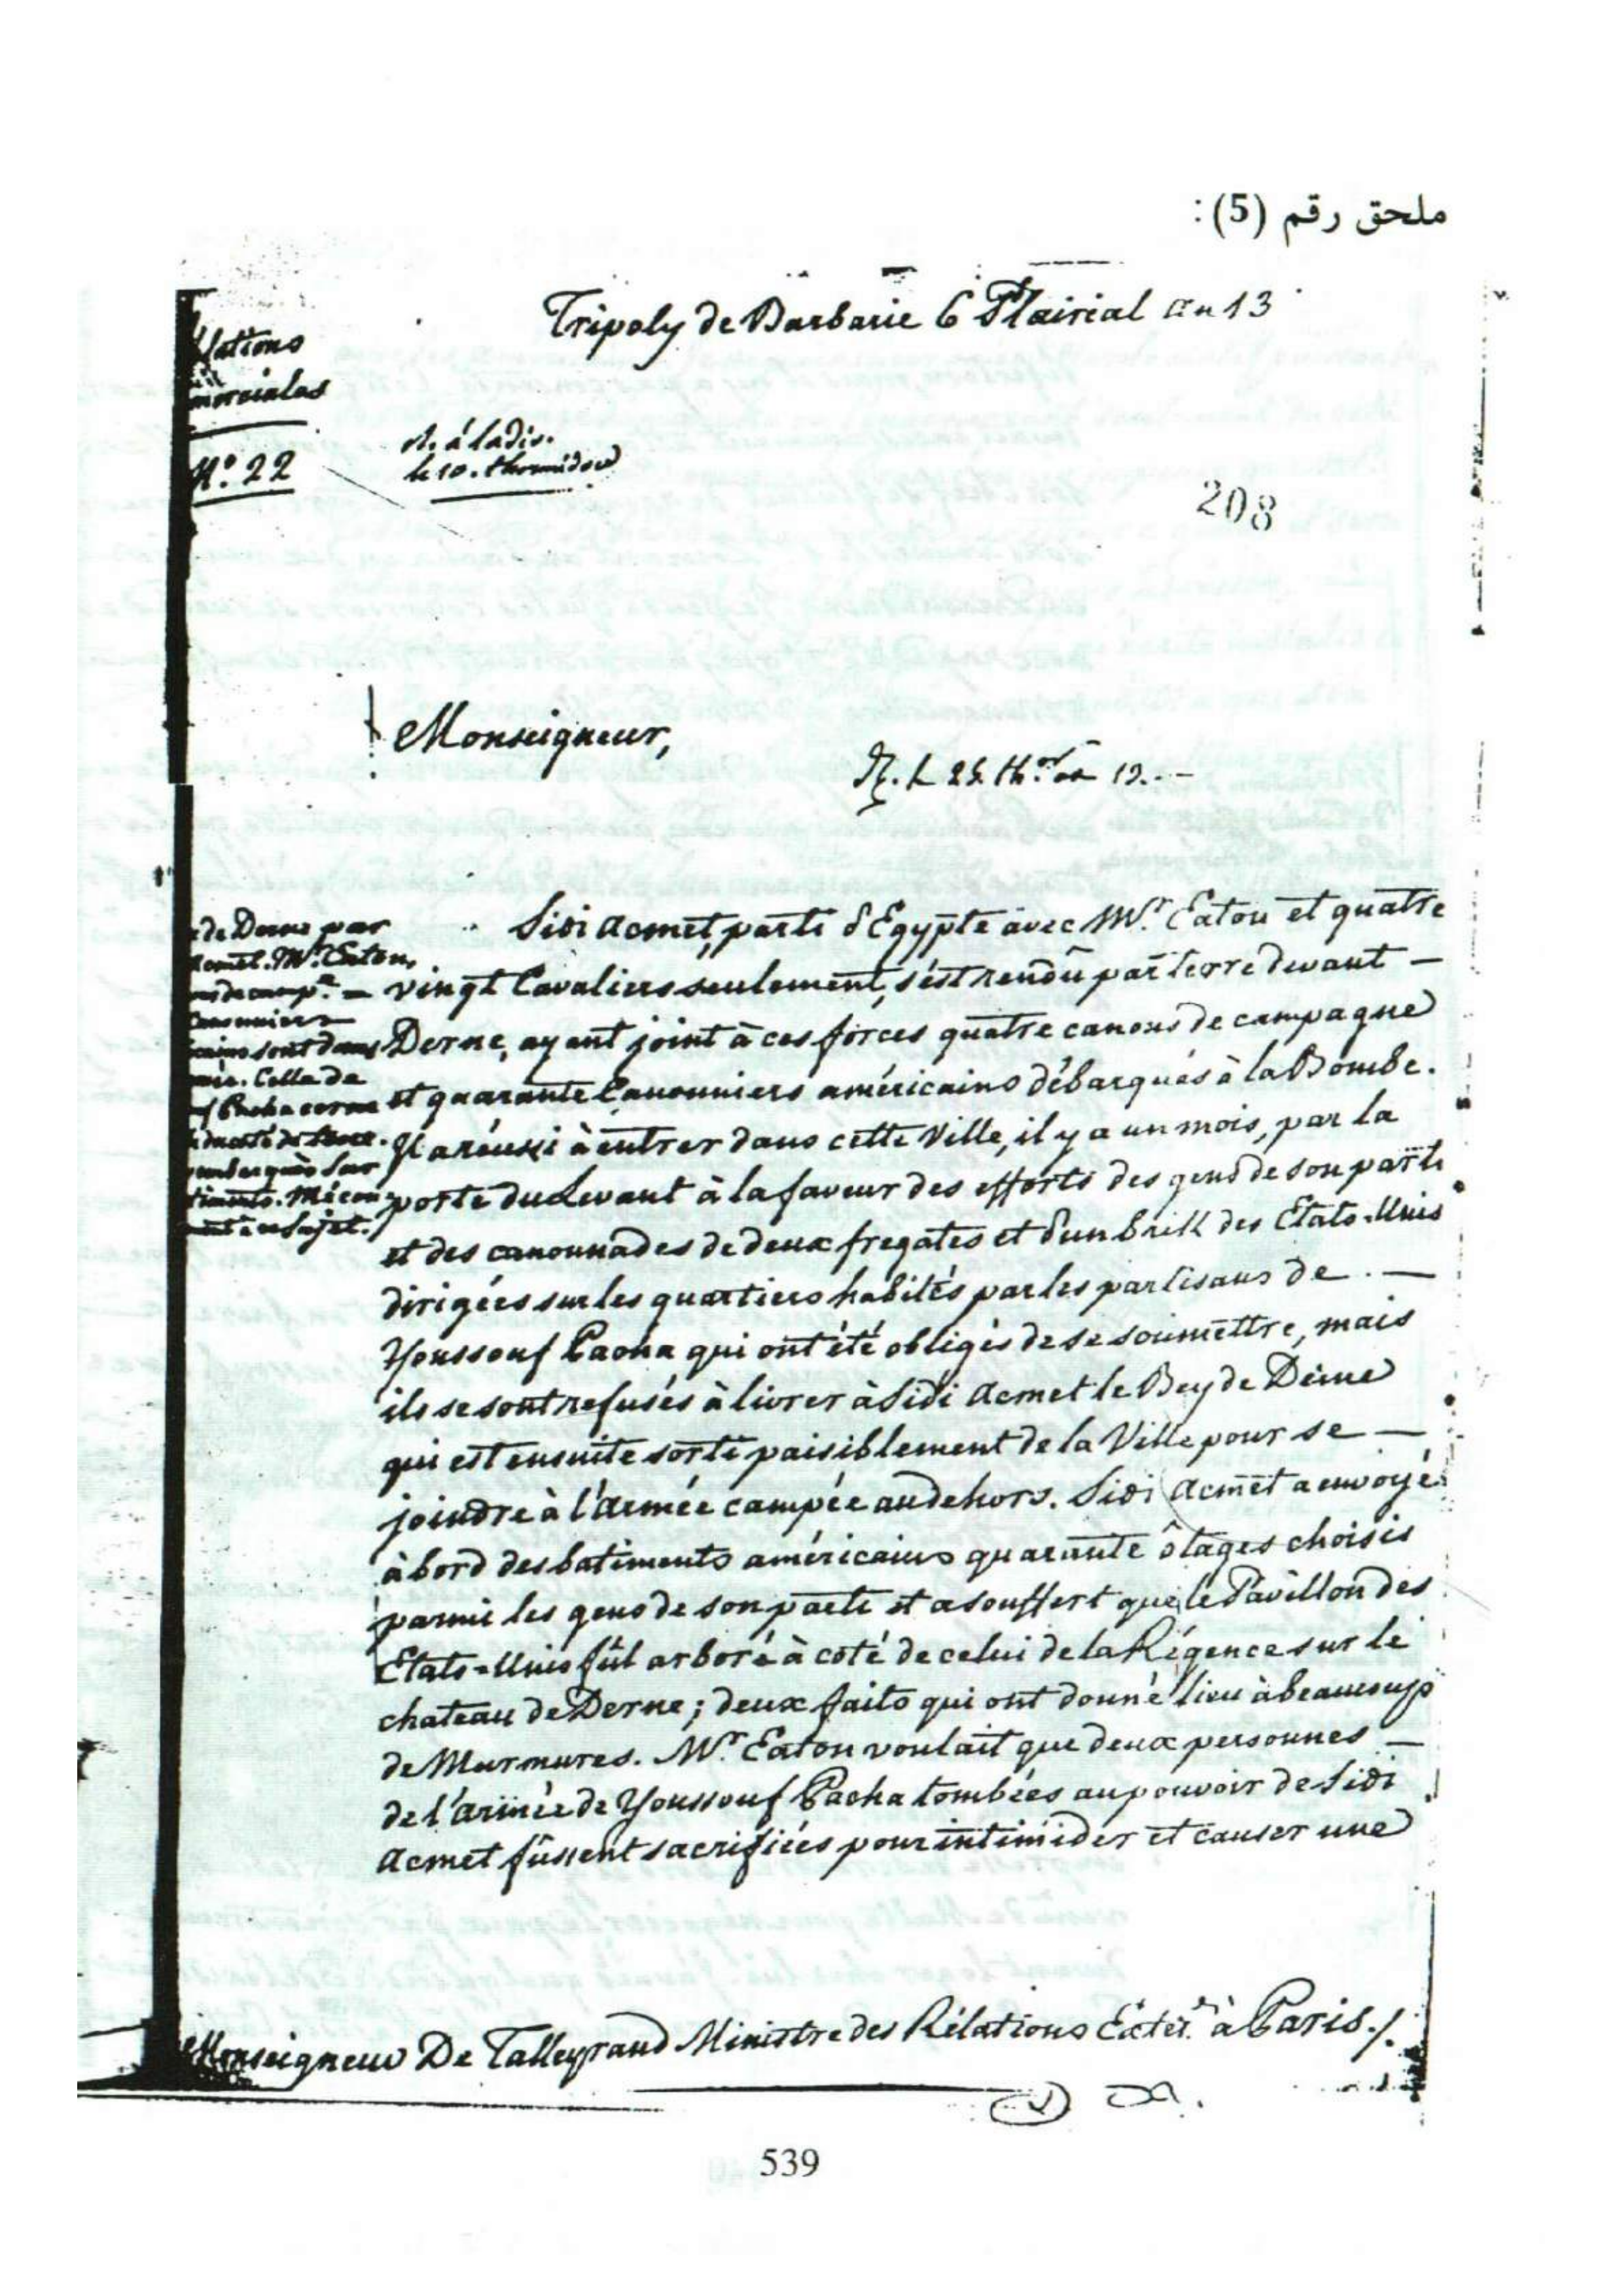 ملحق رقم (5):
Tripoly de Barbarie 6 Plairial an 13
lations
merciales
N.º 22
à la dis.
le 10. thermidor
208
Monseigneur,
de Derne par
Acmet. Mr. Eaton,
de camp.
Canonniers
sont dans
Celle de
Pacha cerne
embarqués sur
timents. Mécon-
à ce sujet.
Sidi Acmet, parti d'Egypte avec Mr. Eaton et quatre
vingt Cavaliers seulement, s'est rendû par terre devant —
Derne, ayant joint à ces forces quatre canons de campagne
et quarante Canonniers américains débarqués à la Bombe.
Il a réussi à entrer dans cette Ville, il y a un mois, par la
porte du Levant à la faveur des efforts des gens de son parti
et des canonnades de deux fregates et d'un brik des Etats-Unis
dirigées sur les quartiers habités par les partisans de —
Youssouf Pacha qui ont été obligés de se soumettre, mais
ils se sont refusés à livrer à Sidi Acmet le Bey de Derne
qui est ensuite sorti paisiblement de la Ville pour se —
joindre à l'armée campée au dehors. Sidi Acmet a envoyé
à bord des batiments américains quarante ôtages choisis
parmi les gens de son parti et a souffert que le Pavillon des
Etats-Unis fût arboré à coté de celui de la Régence sur le
chateau de Derne; deux faits qui ont donné lieu à beaucoup
de Murmures. Mr. Eaton voulait que deux personnes —
de l'armée de Youssouf Pacha tombées au pouvoir de Sidi
Acmet fussent sacrifiées pour intimider et causer une
Monseigneur De Talleyrand Ministre des Rélations Extér.es à Paris./.
539